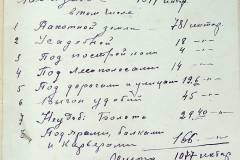 в том числе
1 Пахотной земли 781 гектар
2 Усадебной 18 —"—
3 Под постройками 4 —"—
4 Под лесополосами 14 —"—
5 Под дорогами и улицами 12,6 —"—
6 Выгон удобий 45 —"—
7 Неудобь: Болота 29,40 —"—
8 Под ярами, балками
и карьерами 166 —"—
1077 гектар